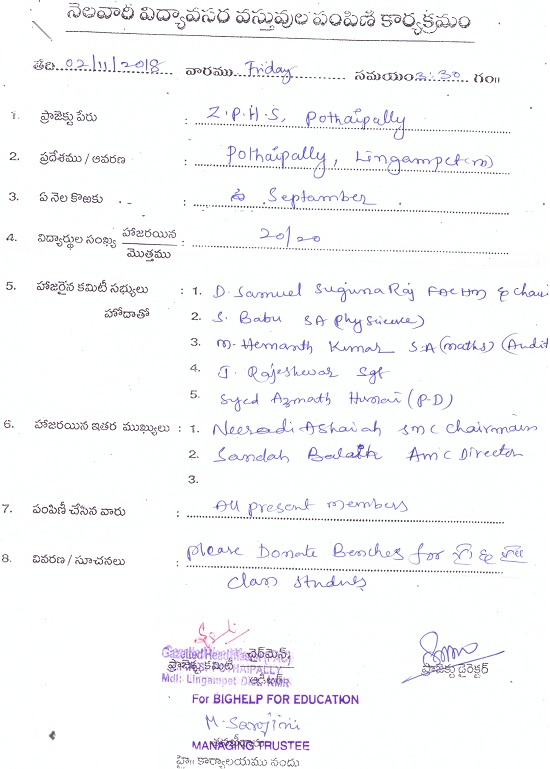 నెలవారీ విద్యావసర వస్తువుల పంపిణీ కార్యక్రమం
తేది 02/11/2018 వారము Friday సమయం 3:30 గం॥
1. ప్రాజెక్టు పేరు : Z.P.H.S, Pothaipally
2. ప్రదేశము / ఆవరణ : Pothaipally, Lingampet(m)
3. ఏ నెల కొఱకు : September
4. విద్యార్థుల సంఖ్య హాజరయిన / మొత్తము : 20/20
5. హాజరైన కమిటీ సభ్యులు హోదాతో : 1. D. Samuel Suguna Raj FAC HM & chair
2. S. Babu SA (Phy Science)
3. M. Hemanth Kumar S.A (maths) (Audit
4. J. Rajeshwar Sgt
5. Syed Azmath Hussai (P.D)
6. హాజరయిన ఇతర ముఖ్యులు : 1. Neeradi Ashaiah SMC Chairmain
2. Sandah Balaiah AMC Director
3.
7. పంపిణీ చేసిన వారు : All present members
8. వివరణ / సూచనలు : please Donate Benches for
class students
చైర్‌మెన్,
ప్రాజెక్టు కమిటీ
ప్రాజెక్టు డైరెక్టర్
Mdl: Lingampet
For BIGHELP FOR EDUCATION
M. Sarojini
MANAGING TRUSTEE
హై॥ కార్యాలయము నందు